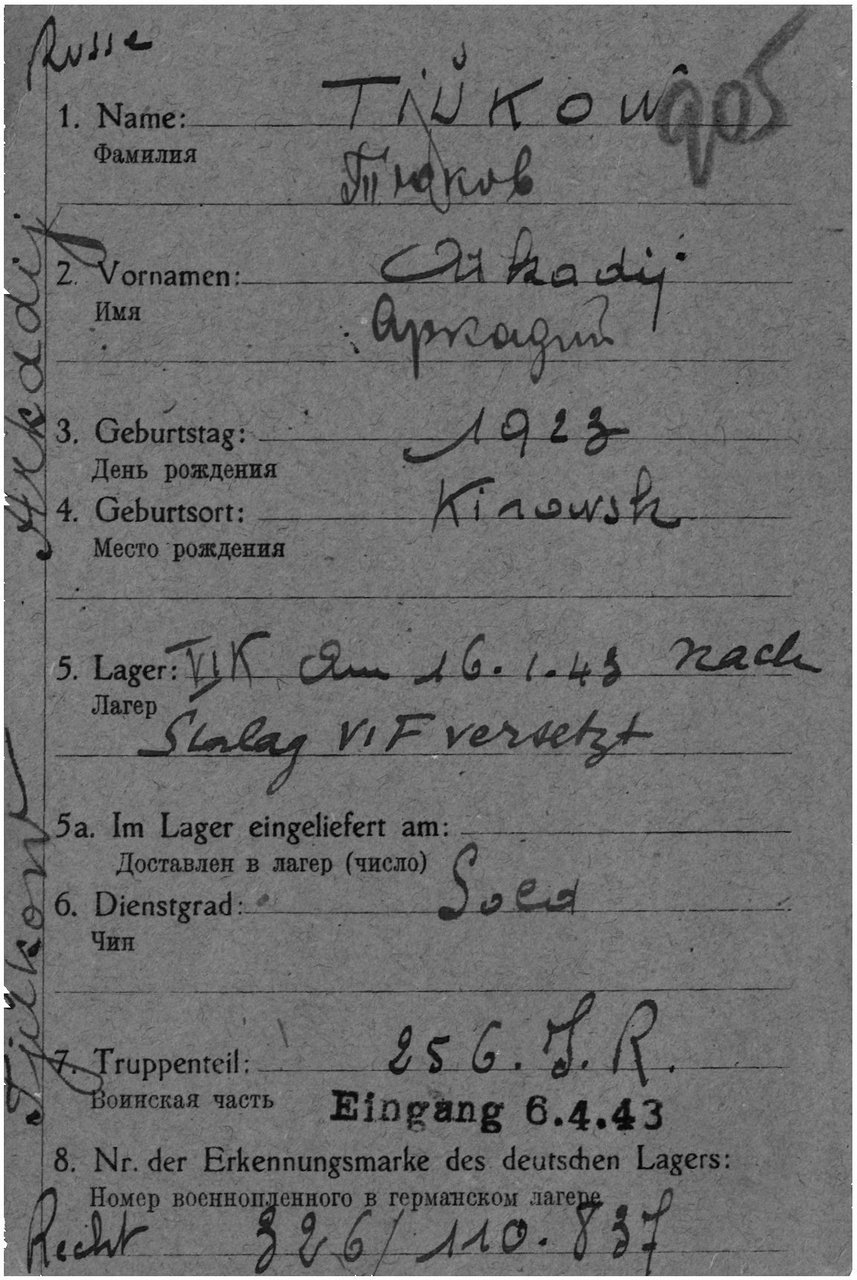 Russe
1. Name: Tjŭkow
905
Фамилия
Тюков
2. Vornamen: Arkadij
Имя
Аркадий
3. Geburtstag: 1923
День рождения
4. Geburtsort: Kirowsk
Место рождения
5. Lager: VIK Am 16.1.43 nach
Лагер
Stalag VI F versetzt
5a. Im Lager eingeliefert am:
Доставлен в лагер (число)
6. Dienstgrad: Sold
Чин
7. Truppenteil: 256. J. R.
Воинская часть
Eingang 6.4.43
8. Nr. der Erkennungsmarke des deutschen Lagers:
Номер военнопленного в германском лагере
Recht 326/110.837
Tjŭkow Arkadij